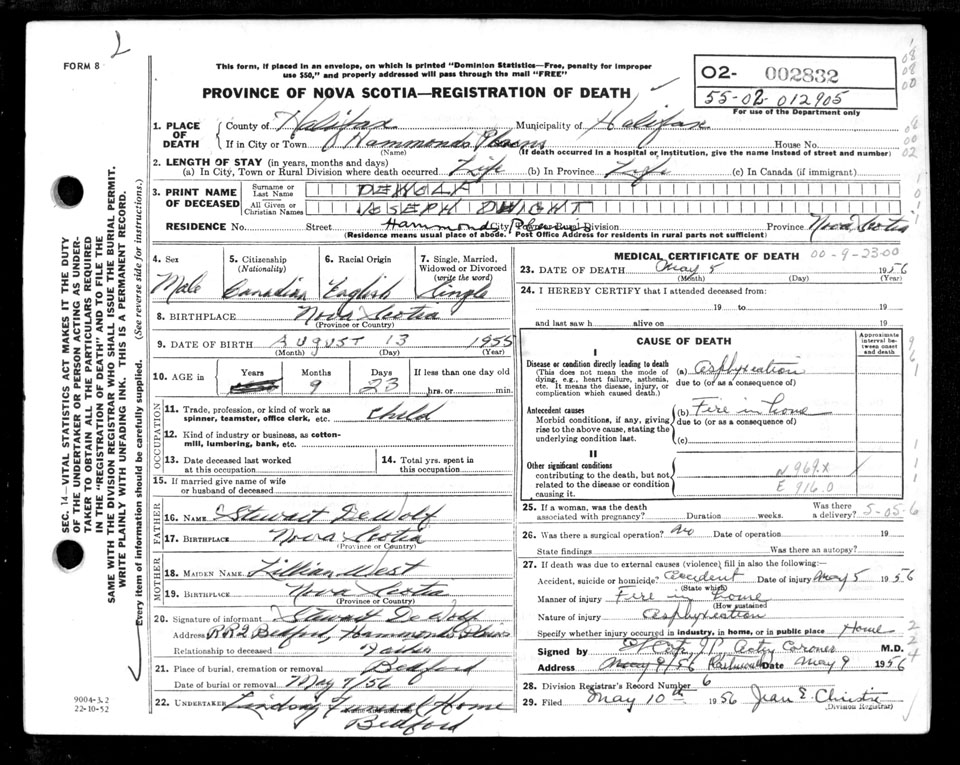 2
FORM 8
This form, if placed in an envelope, on which is printed "Dominion Statistics—Free, penalty for improper
use $50," and properly addressed will pass through the mail "FREE"
PROVINCE OF NOVA SCOTIA—REGISTRATION OF DEATH
02- 002832
55-02-012905
For use of the Department only
1. PLACE OF DEATH
County of Halifax Municipality of Halifax
If in City or Town Hammonds Plains House No.
(Name) (If death occurred in a hospital or institution, give the name instead of street and number)
2. LENGTH OF STAY (in years, months and days)
(a) In City, Town or Rural Division where death occurred Life (b) In Province Life (c) In Canada (if immigrant)
3. PRINT NAME OF DECEASED
Surname or Last Name DEWOLF
All Given or Christian Names JOSEPH DWIGHT
RESIDENCE No. Street Hammonds Plains City, Town or Rural Division Province Nova Scotia
(Residence means usual place of abode. Post Office Address for residents in rural parts not sufficient)
4. Sex 5. Citizenship (Nationality) 6. Racial Origin 7. Single, Married, Widowed or Divorced (write the word)
Male Canadian English Single
8. BIRTHPLACE Nova Scotia
(Province or Country)
9. DATE OF BIRTH AUGUST 13 1955
(Month) (Day) (Year)
10. AGE in Years Months Days If less than one day old
9 23 hrs. or min.
OCCUPATION
11. Trade, profession, or kind of work as
spinner, teamster, office clerk, etc. Child
12. Kind of industry or business, as cotton-
mill, lumbering, bank, etc.
13. Date deceased last worked
at this occupation
14. Total yrs. spent in
this occupation
15. If married give name of wife
or husband of deceased
FATHER
16. NAME Stewart DeWolf
17. BIRTHPLACE Nova Scotia
(Province or Country)
MOTHER
18. MAIDEN NAME Lillian West
19. BIRTHPLACE Nova Scotia
(Province or Country)
20. Signature of informant Stewart DeWolf
Address RR2 Bedford, Hammonds Plains
Relationship to deceased Father
21. Place of burial, cremation or removal Bedford
Date of burial or removal May 7/56
22. UNDERTAKER Lindsay Funeral Home
(Name and address)
Bedford
MEDICAL CERTIFICATE OF DEATH 00-9-23-00
23. DATE OF DEATH May 5 1956
(Month) (Day) (Year)
24. I HEREBY CERTIFY that I attended deceased from:
19 to 19
and last saw h alive on 19
CAUSE OF DEATH
Approximate interval between onset and death
I
Disease or condition directly leading to death
(This does not mean the mode of
dying, e.g., heart failure, asthenia,
etc. It means the disease, injury, or
complication which caused death.)
(a) Asphyxiation
due to (or as a consequence of)
Antecedent causes
Morbid conditions, if any, giving
rise to the above cause, stating the
underlying condition last.
(b) Fire in home
due to (or as a consequence of)
(c)
II
Other significant conditions
contributing to the death, but not
related to the disease or condition
causing it.
N 969.X
E 916.0
25. If a woman, was the death
associated with pregnancy? Duration weeks. Was there a delivery?
5-05-6
26. Was there a surgical operation? No Date of operation 19
State findings Was there an autopsy?
27. If death was due to external causes (violence) fill in also the following:
Accident, suicide or homicide? Accident Date of injury May 5 1956
(State which)
Manner of injury Fire in home
(How sustained
Nature of injury Asphyxiation
Specify whether injury occurred in industry, in home, or in public place Home
Signed by J.P. Acting Coroner M.D.
Address May 9/56 Dartmouth Date May 9 1956
28. Division Registrar's Record Number 6
29. Filed May 10th 1956 Jean E. Christie
(Division Registrar)
SEC. 14—VITAL STATISTICS ACT MAKES IT THE DUTY
OF THE UNDERTAKER OR PERSON ACTING AS UNDER-
TAKER TO OBTAIN ALL THE PARTICULARS REQUIRED
IN THE "REGISTRATION OF DEATH" AND TO FILE THE
SAME WITH THE DIVISION REGISTRAR WHO SHALL ISSUE THE BURIAL PERMIT.
WRITE PLAINLY WITH UNFADING INK. THIS IS A PERMANENT RECORD.
Every item of information should be carefully supplied. (See reverse side for instructions.)
9004-3, 2
22-10-52